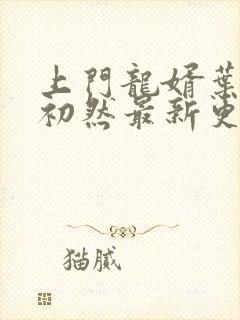 上門龍婿葉
初然最新更
猫膩